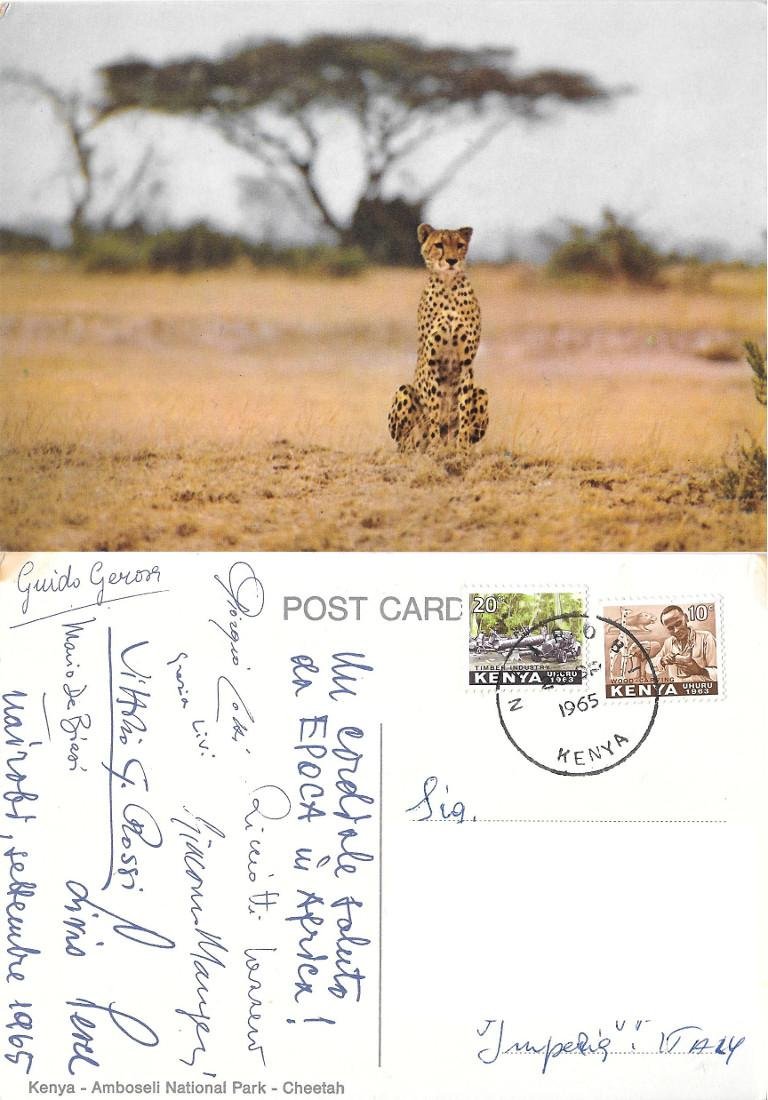 Guido Gerosa
POST CARD
20c
TIMBER INDUSTRY
KENYA UHURU 1963
10c
WOOD-CARVING
KENYA UHURU 1963
1965
KENYA
Un cordiale saluto
da EPOCA in Africa!
Giorgio
Grazia Livi
Ricciotti Lazzero
Giacomo Maugeri
Vittorio G. Rossi
Livio
Mario De Biasi
Nairobi, settembre 1965
Sig.
"Imperia" ITALY
Kenya - Amboseli National Park - Cheetah